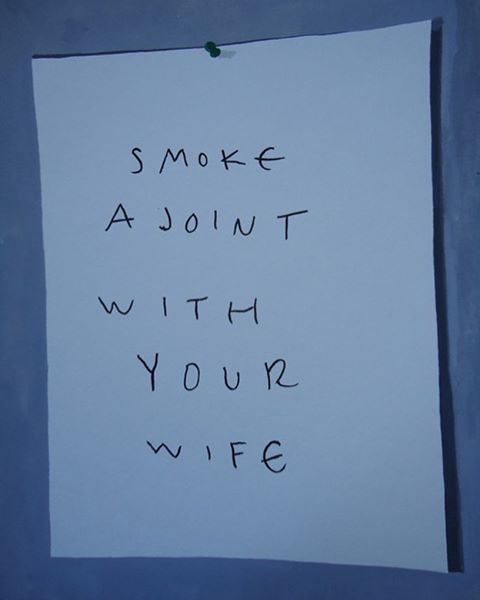 SMOKE
A JOINT
WITH
YOUR
WIFE